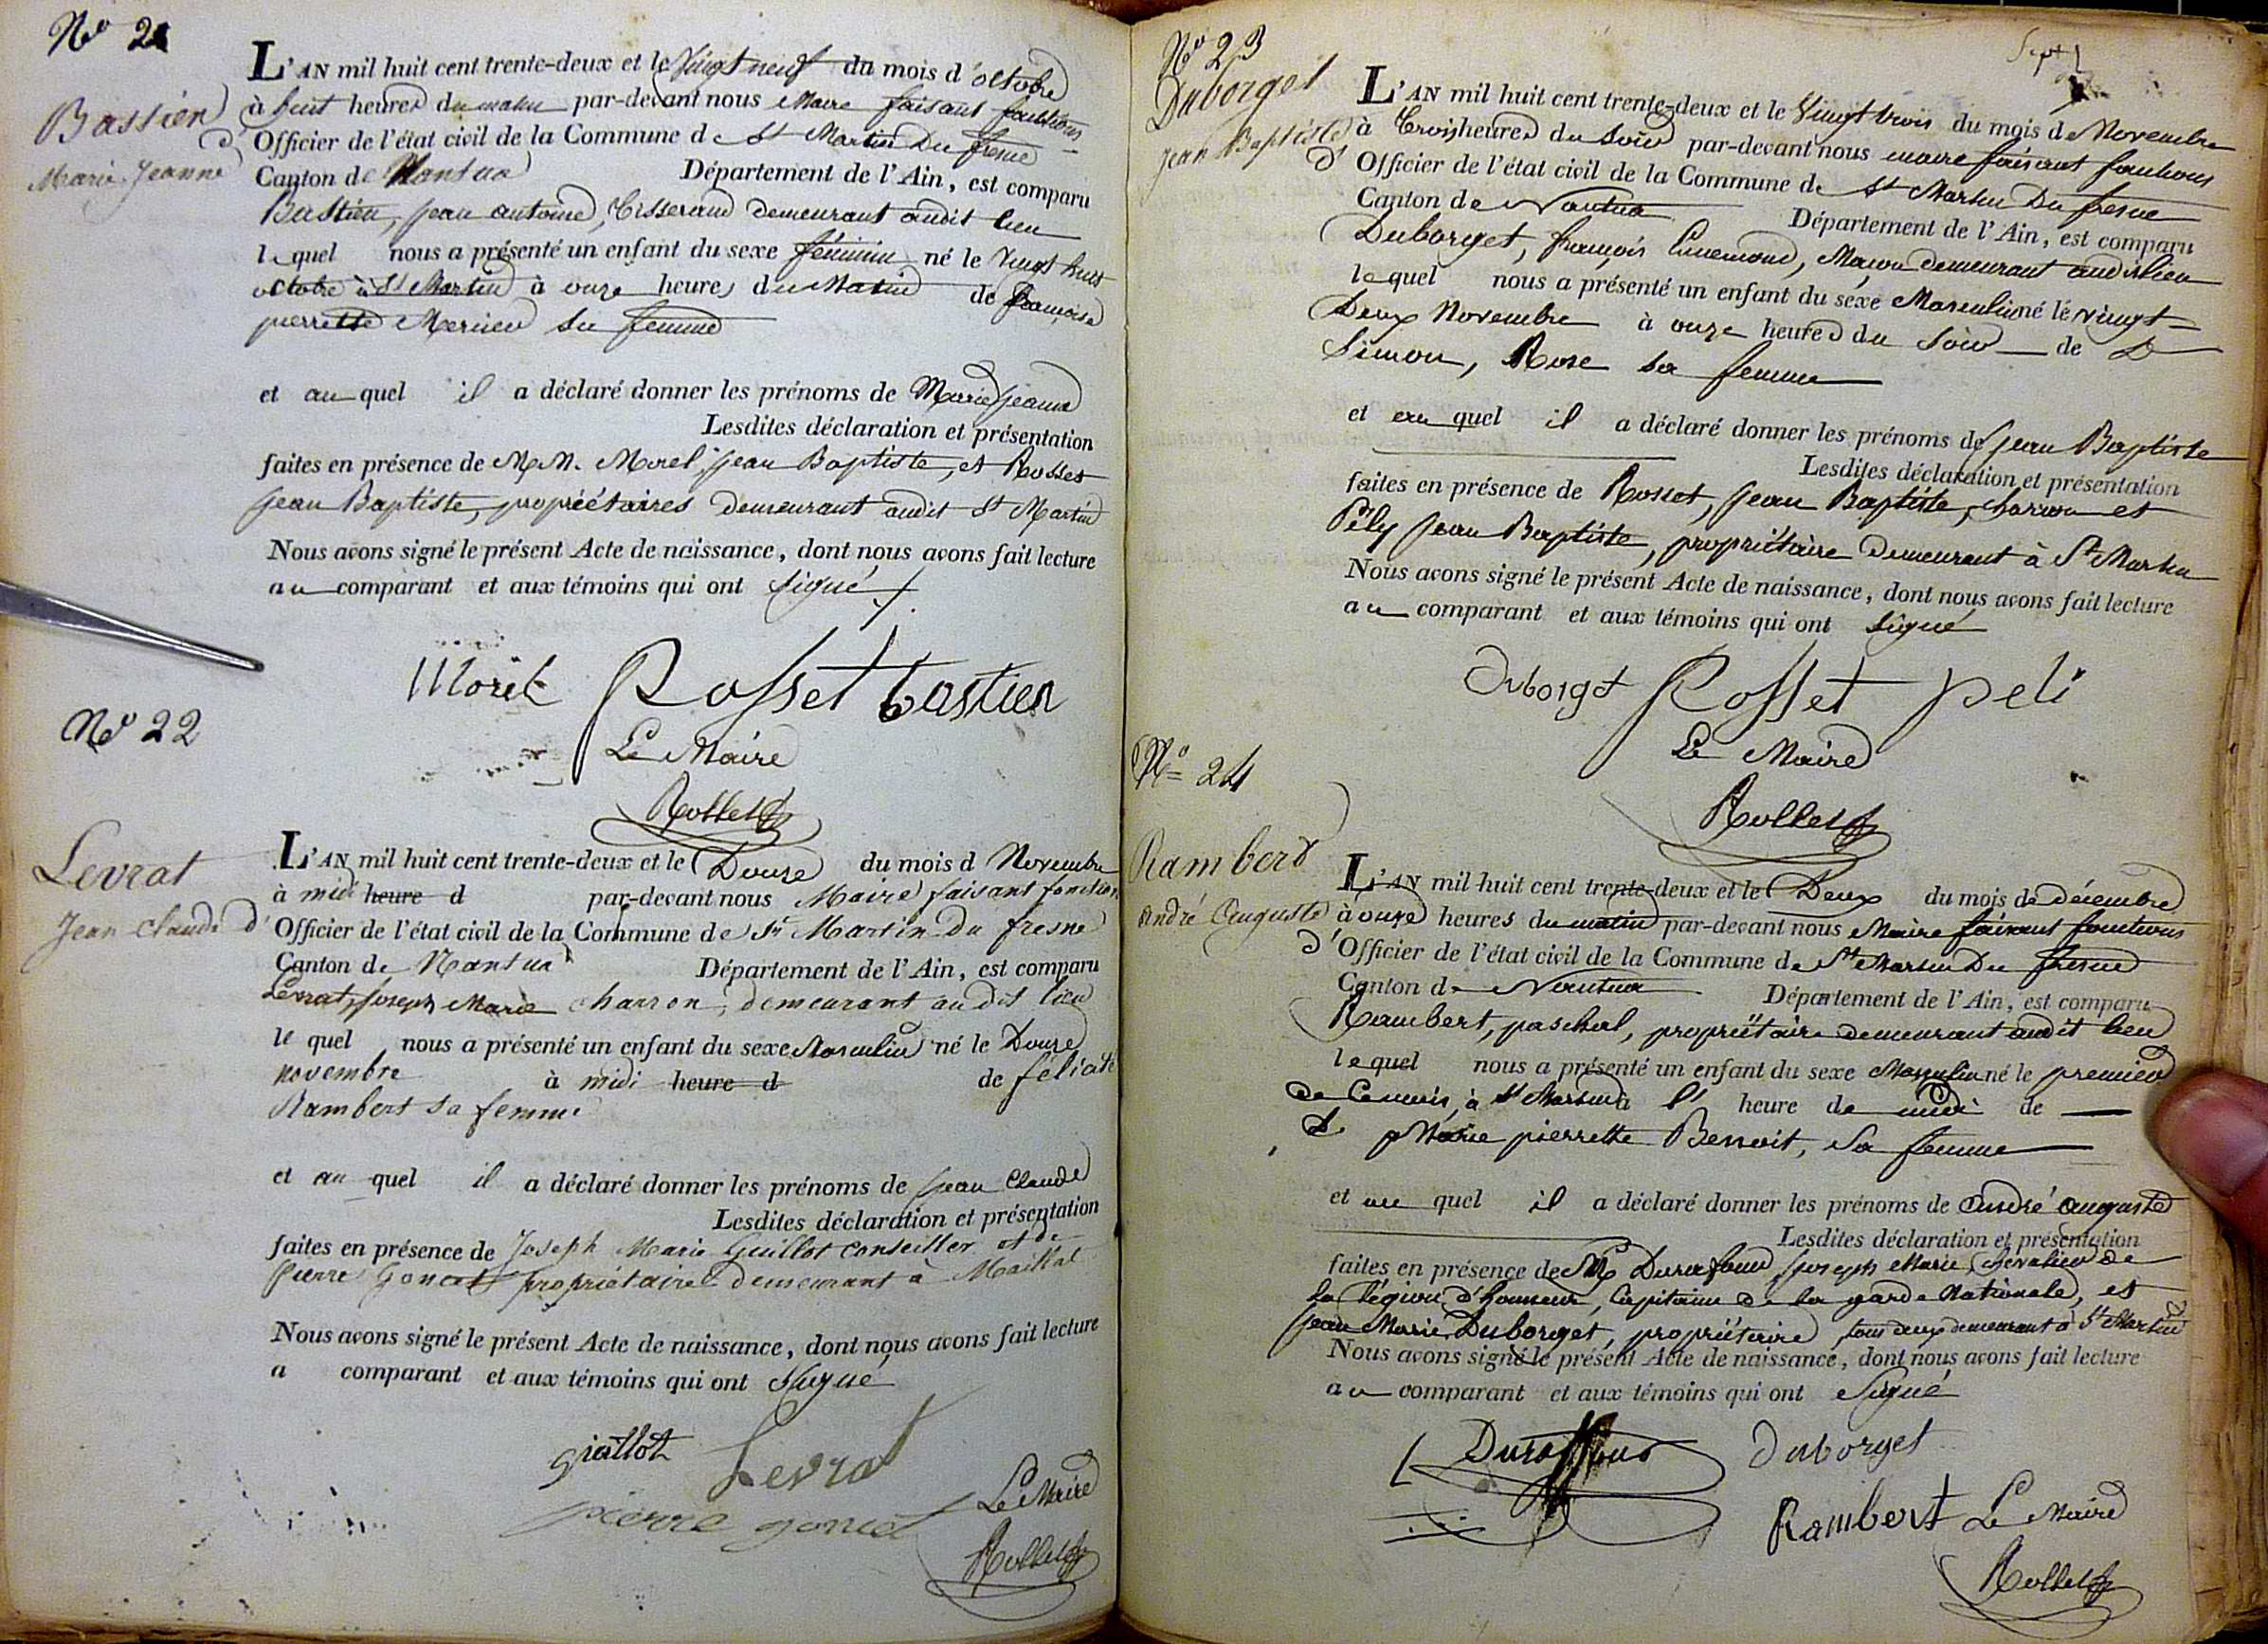 No 21
Bastien
Marie Jeanne
L'AN mil huit cent trente-deux et le Vingt neuf du mois d'octobre
à huit heures du matin par-devant nous Maire faisant fonctions
d'Officier de l'état civil de la Commune de St Martin Du fresne
Canton de Nantua Département de l'Ain, est comparu
Bastien, jean antoine, Tisserand demeurant audit lieu
lequel nous a présenté un enfant du sexe féminin né le Vingt huit
octobre à St Martin à onze heures du Matin de françoise
pierrette Mercier sa femme
et au quel il a déclaré donner les prénoms de Marie jeanne
Lesdites déclaration et présentation
faites en présence de M.M. Morel jean Baptiste, et Rosset
jean Baptiste, propriétaires demeurant audit St Martin
Nous avons signé le présent Acte de naissance, dont nous avons fait lecture
au comparant et aux témoins qui ont signé
Morel Rosset bastien
Le Maire
Rollet
No 22
Levrat
Jean Claude
L'AN mil huit cent trente-deux et le Douze du mois d Novembre
à midi heure d par-devant nous Maire faisant fonction
d'Officier de l'état civil de la Commune de St Martin Du fresne
Canton de Nantua Département de l'Ain, est comparu
Levrat, joseph Marie charron, demeurant audit lieu
le quel nous a présenté un enfant du sexe Masculin né le Douze
novembre à midi heure d de félicité
Rambert sa femme
et au quel il a déclaré donner les prénoms de jean Claude
Lesdites déclaration et présentation
faites en présence de Joseph Marie Guillot conseiller et de
Pierre Goncet propriétaire demeurant à Maillat
Nous avons signé le présent Acte de naissance, dont nous avons fait lecture
a comparant et aux témoins qui ont signé
guillot Levrat
pierre goncet Le Maire
Rollet
No 23
Duborget
jean Baptiste
Sept
L'AN mil huit cent trente-deux et le Vingt trois du mois de Novembre
à trois heures du soir par-devant nous maire faisant fonctions
d'Officier de l'état civil de la Commune de St Martin Du fresne
Canton de Nantua Département de l'Ain, est comparu
Duborget, françois, Maçon demeurant audit lieu
lequel nous a présenté un enfant du sexe Masculin né le vingt-
Deux Novembre à onze heures du soir de
Simon, Rose sa femme
et au quel il a déclaré donner les prénoms de jean Baptiste
Lesdites déclaration et présentation
faites en présence de Rosset, jean Baptiste, charron et
Pély jean Baptiste, propriétaire demeurant à St Martin
Nous avons signé le présent Acte de naissance, dont nous avons fait lecture
au comparant et aux témoins qui ont signé
Duborget Rosset peli
Le Maire
Rollet
No 24
Rambert
André Auguste
L'AN mil huit cent trente-deux et le Deux du mois de décembre
à onze heures du matin par-devant nous Maire faisant fonctions
d'Officier de l'état civil de la Commune de St Martin Du fresne
Canton de Nantua Département de l'Ain, est comparu
Rambert, paschal, propriétaire demeurant audit lieu
lequel nous a présenté un enfant du sexe Masculin né le premier
de ce mois, à St Martin à l' heure de midi de
Marie pierrette Benoit, sa femme
et au quel il a déclaré donner les prénoms de André auguste
Lesdites déclaration et présentation
faites en présence de Durafour, joseph Marie Chevalier de
la légion d'honneur, Capitaine de la garde Nationale, et
jean Marie Duborget, propriétaire tous deux demeurant à St Martin
Nous avons signé le présent Acte de naissance, dont nous avons fait lecture
au comparant et aux témoins qui ont signé
Duraffour Duborget
Rambert Le Maire
Rollet